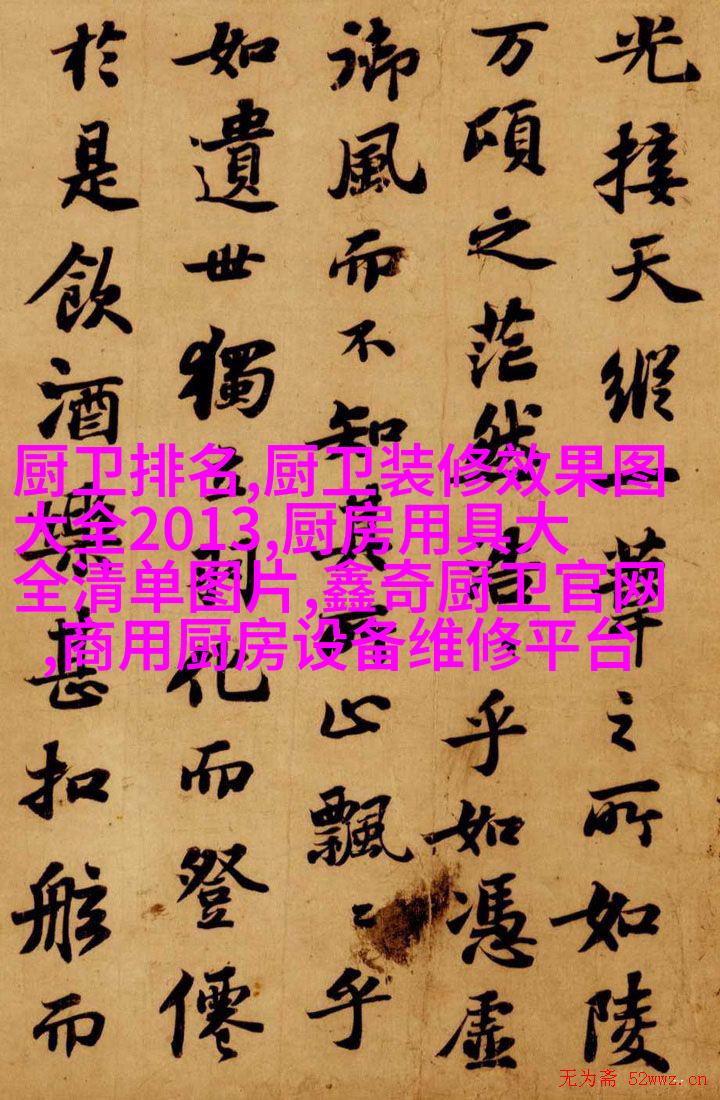 光接天縱一葦之所如陵
万頃之茫然浩〻乎如憑虛
御風而不知其所止飄〻乎
如遺世獨立羽化而登僊
於是飲酒樂甚扣舷而
厨卫排名,厨卫装修效果图
大全2013,厨房用具大
全清单图片,鑫奇厨卫官网
,商用厨房设备维修平台
无为斋 52wwz.cn